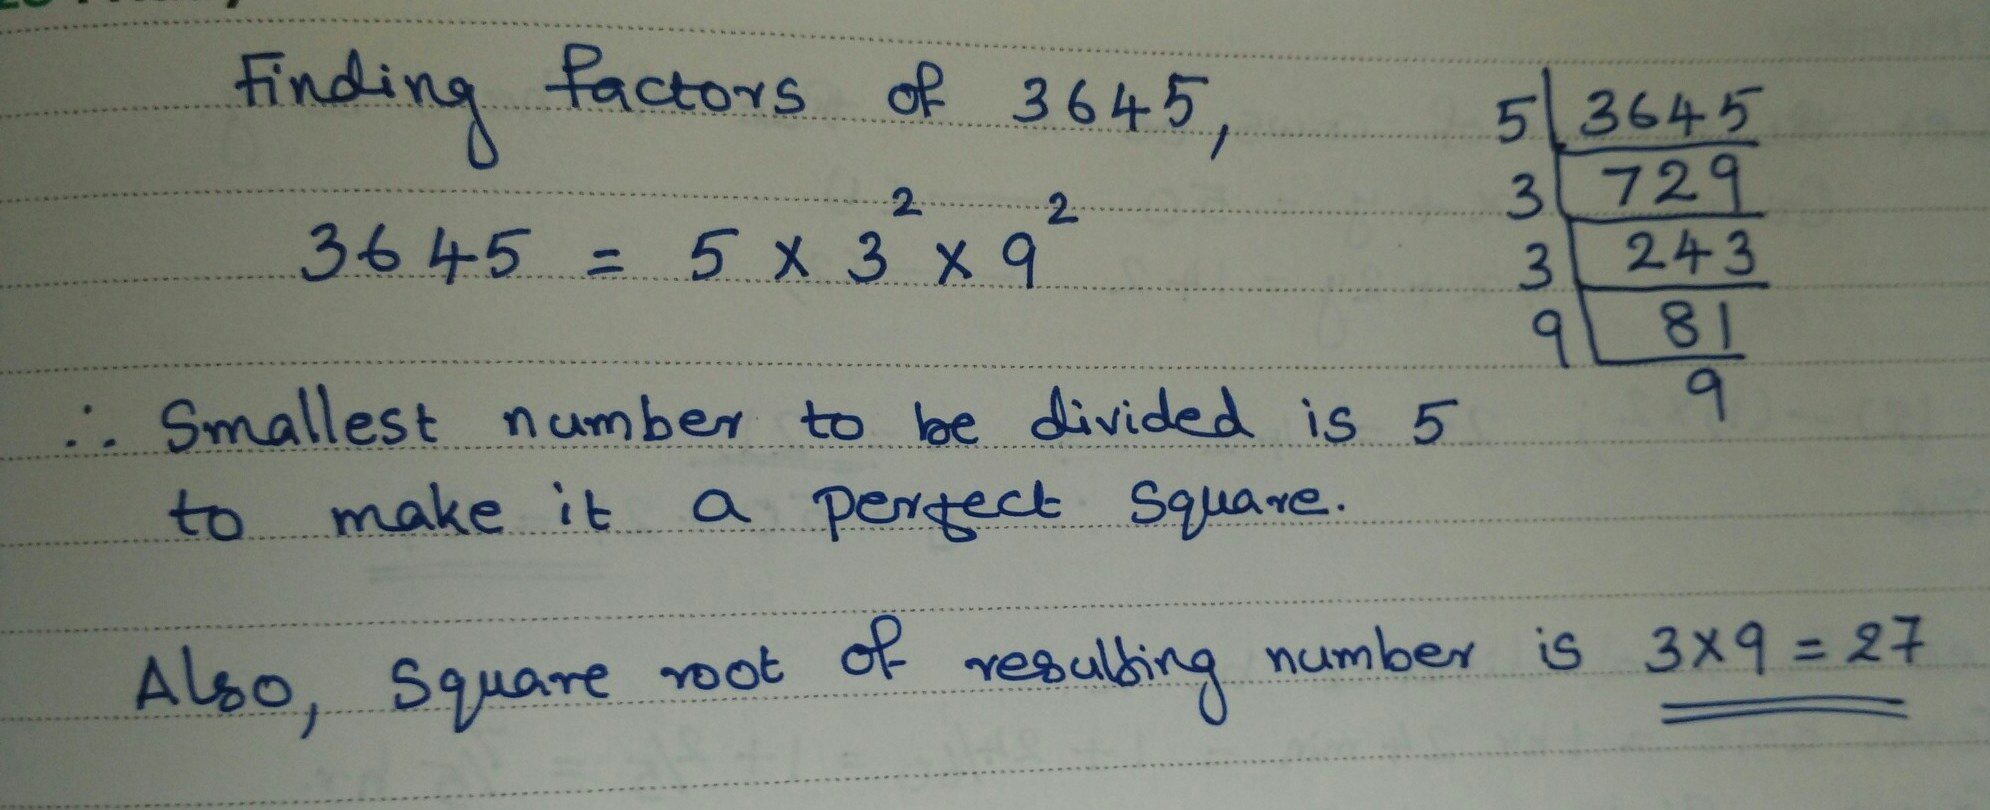 Finding factors of 3645,
3645 = 5 x 3² x 9²
5 | 3645
3 | 729
3 | 243
9 | 81
9
∴ Smallest number to be divided is 5
to make it a perfect square.
Also, square root of resulting number is 3x9 = 27